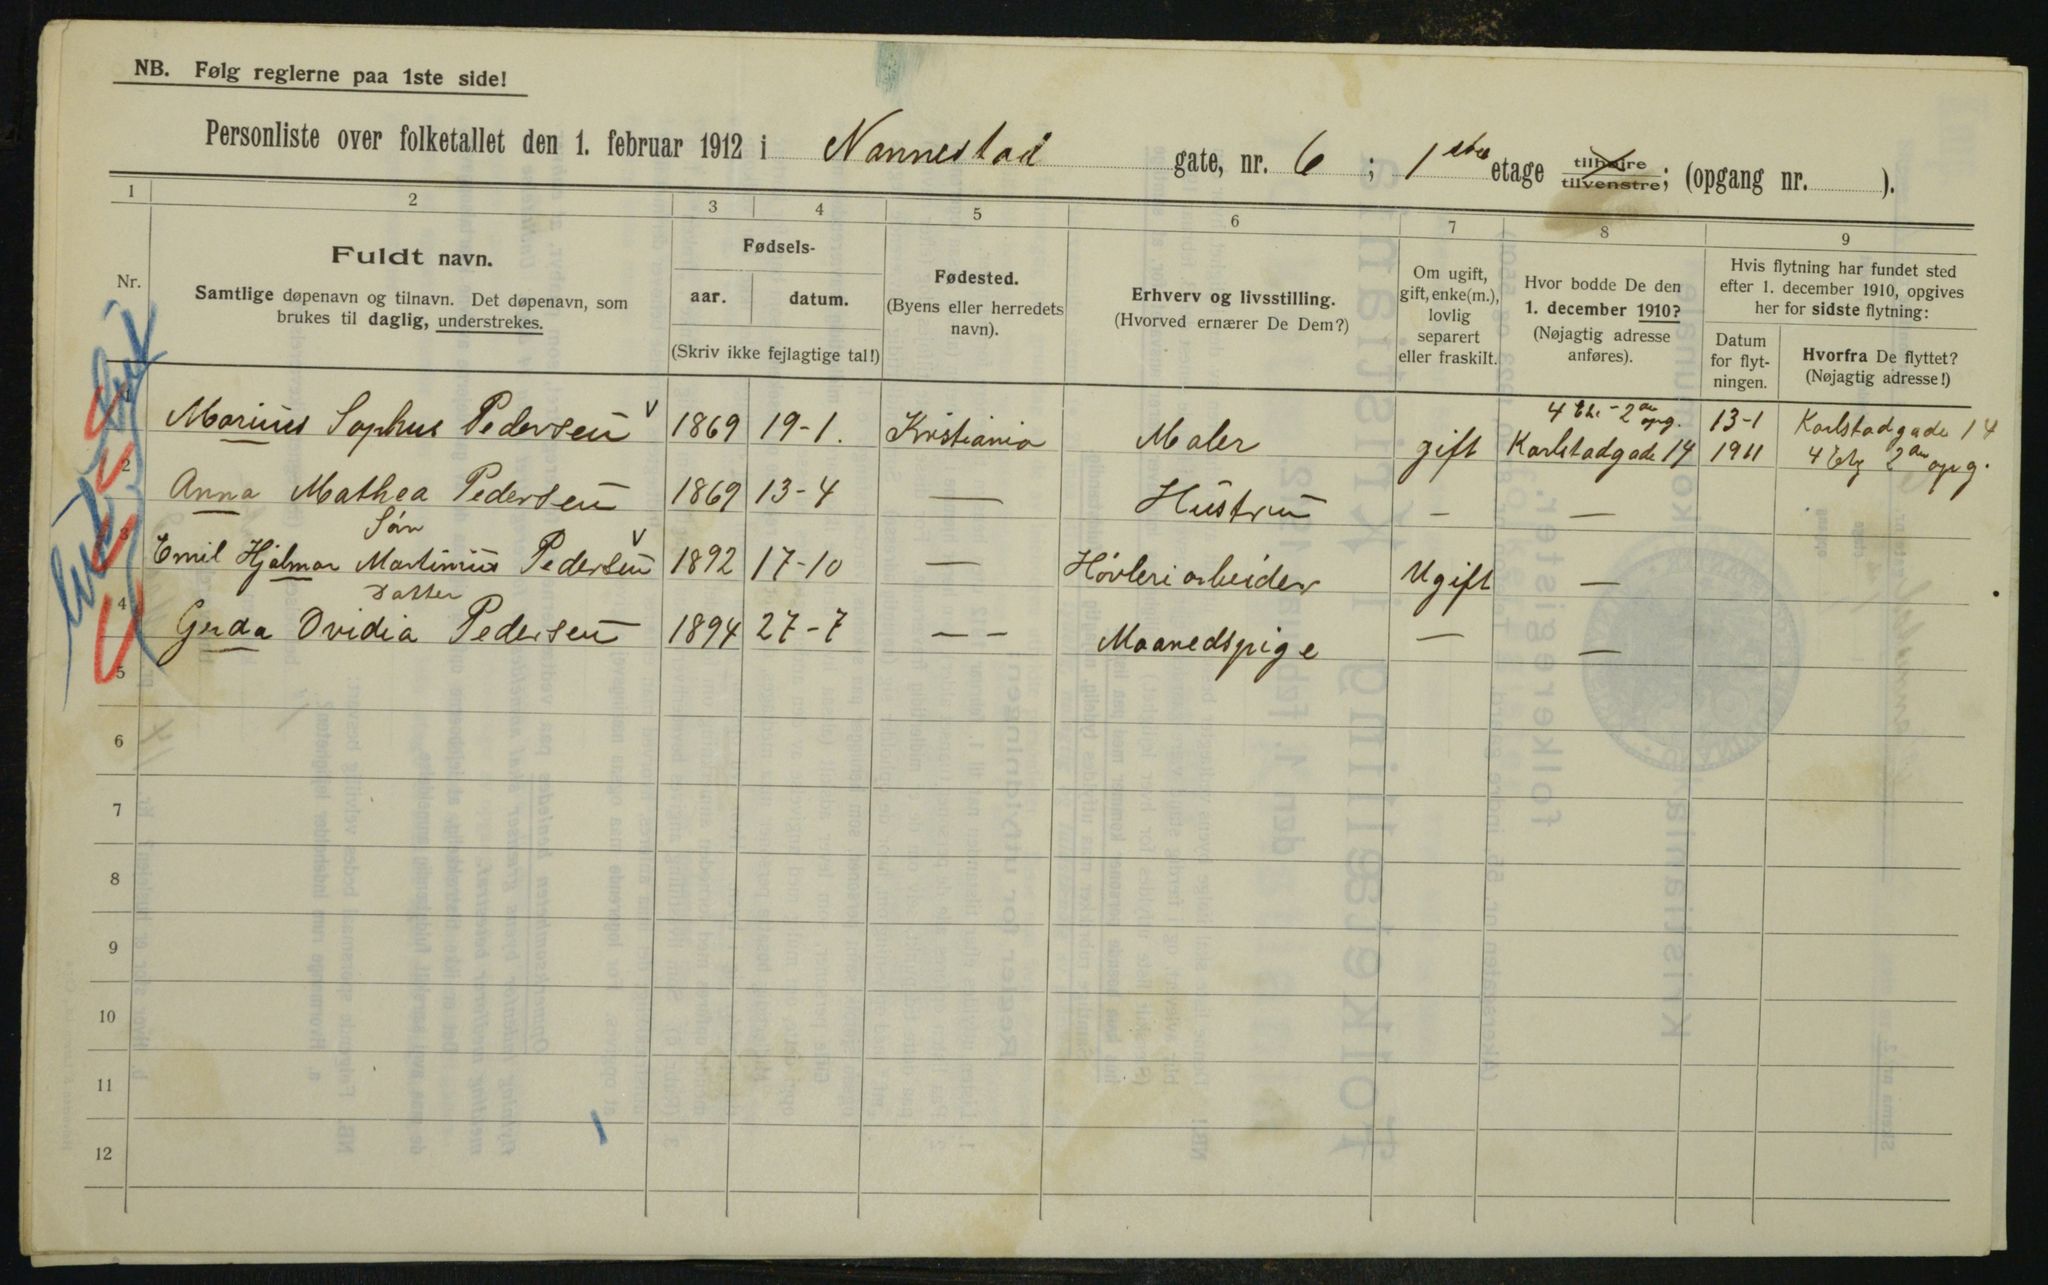 NB. Følg reglerne paa 1ste side!
Personliste over folketallet den 1. februar 1912 i Nannestad gate, nr. 6 ; 1ste etage tilhøire tilvenstre; (opgang nr. ).
1 2 3 4 5 6 7 8 9
Nr.
Fuldt navn.
Samtlige døpenavn og tilnavn. Det døpenavn, som
brukes til daglig, understrekes.
Fødsels-
aar. datum.
(Skriv ikke fejlagtige tal!)
Fødested.
(Byens eller herredets
navn).
Erhverv og livsstilling.
(Hvorved ernærer De Dem?)
Om ugift,
gift, enke(m.),
lovlig
separert
eller fraskilt.
Hvor bodde De den
1. december 1910?
(Nøjagtig adresse
anføres).
Hvis flytning har fundet sted
efter 1. december 1910, opgives
her for sidste flytning:
Datum
for flyt-
ningen.
Hvorfra De flyttet?
(Nøjagtig adresse!)
4 Etg - 2den opg. 13-1 Karlstadgade 14
1 Marius Sophus Pedersen v 1869 19-1. Kristiania Maler gift Karlstadgade 14 1911 4 Etg 2den opg.
2 Anna Mathea Pedersen 1869 13-4 — Hustru — —
Søn
3 Emil Hjalmar Martinius Pedersen v 1892 17-10 — Høvleriarbeider Ugift —
Datter
4 Gerda Ovidia Pedersen 1894 27-7 — — Maanedspige — —
5
6
7
8
9
10
11
12